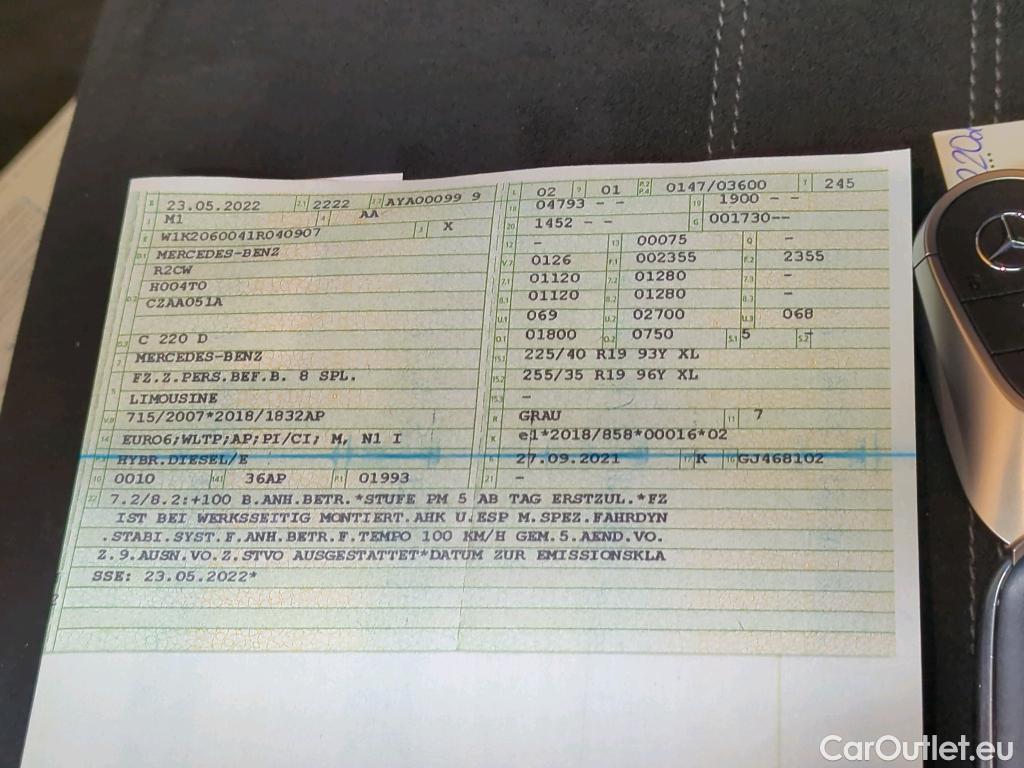 B 23.05.2022 2.1 2222 2.2 AYA00099 9
J M1 4 AA
E W1K2060041R040907 3 X
D.1 MERCEDES-BENZ
R2CW
D.2 H004T0
CZAA051A
D.3 C 220 D
2 MERCEDES-BENZ
5 FZ.Z.PERS.BEF.B. 8 SPL.
LIMOUSINE
V.9 715/2007*2018/1832AP
14 EURO6;WLTP;AP;PI/CI; M, N1 I
P.3 HYBR.DIESEL/E
10 0010 14.1 36AP P.1 01993
L 02 9 01 P.2 P.4 0147/03600 T 245
18 04793 - - 19 1900 - -
20 1452 - - G 001730--
12 - 13 00075 Q -
V.7 0126 F.1 002355 F.2 2355
7.1 01120 7.2 01280 7.3 -
8.1 01120 8.2 01280 8.3 -
U.1 069 U.2 02700 U.3 068
O.1 01800 O.2 0750 S.1 5 S.2 -
15.1 225/40 R19 93Y XL
15.2 255/35 R19 96Y XL
15.3 -
R GRAU 11 7
K e1*2018/858*00016*02
6 27.09.2021 17 K 16 GJ468102
21 -
22 7.2/8.2:+100 B.ANH.BETR.*STUFE PM 5 AB TAG ERSTZUL.*FZ
IST BEI WERKSSEITIG MONTIERT.AHK U.ESP M.SPEZ.FAHRDYN
.STABI.SYST.F.ANH.BETR.F.TEMPO 100 KM/H GEM.5.AEND.VO.
Z.9.AUSN.VO.Z.STVO AUSGESTATTET*DATUM ZUR EMISSIONSKLA
SSE: 23.05.2022*
220d
CarOutlet.eu